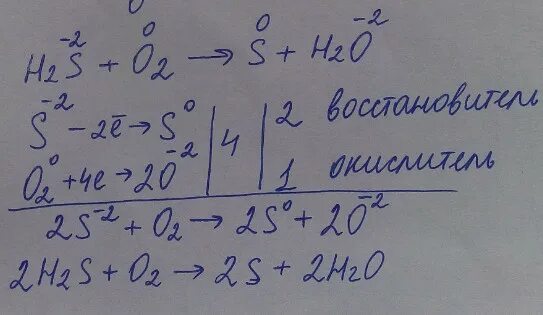 H₂S⁻² + O₂⁰ → S⁰ + H₂O⁻²
S⁻² − 2ē → S⁰ | 4 | 2 восстановитель
O₂⁰ + 4e → 2O⁻² | | 1 окислитель
2S⁻² + O₂ → 2S⁰ + 2O⁻²
2H₂S + O₂ → 2S + 2H₂O